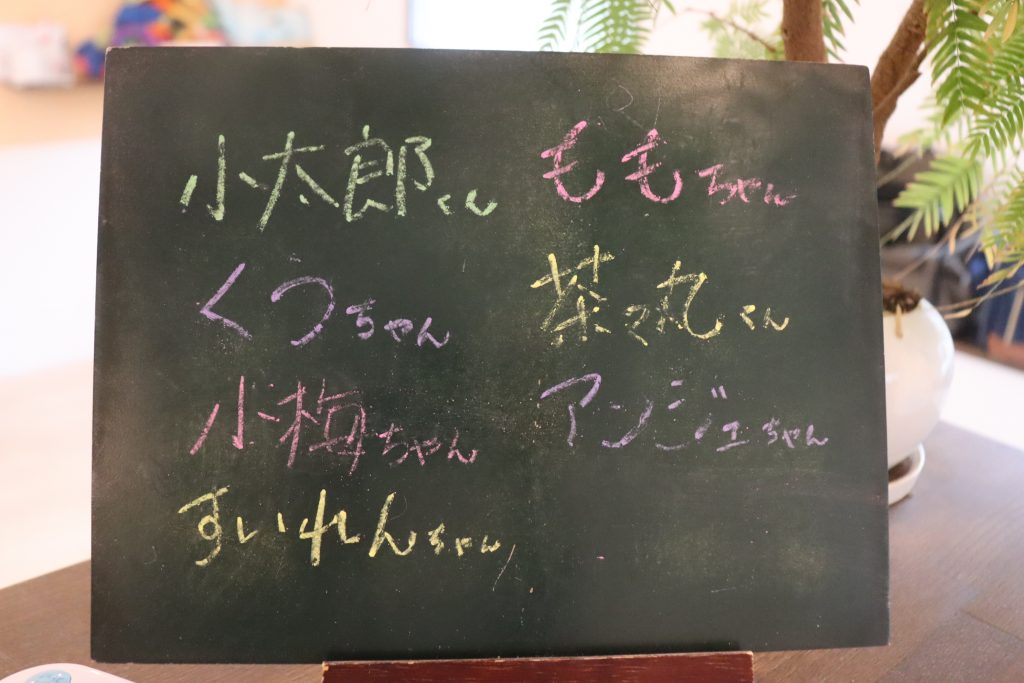 小太郎くん
くつちゃん
小梅ちゃん
すいれんちゃん
ももちゃん
茶々丸くん
アンジェちゃん